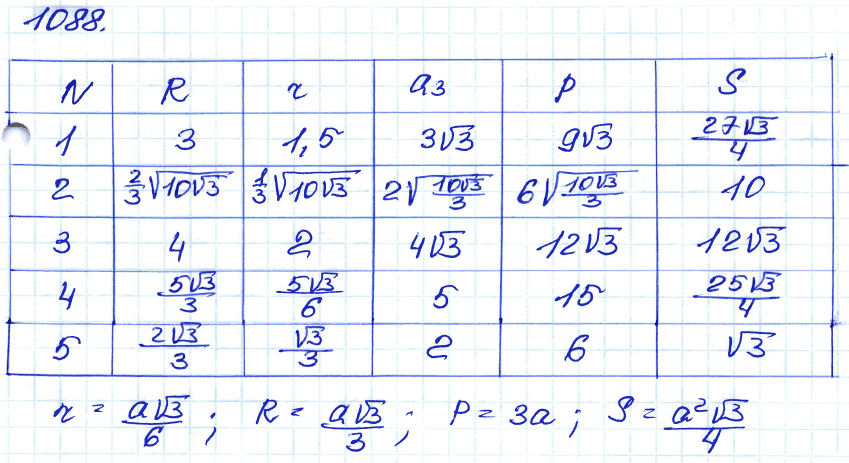 1088.
N R r a₃ P S
1 3 1,5 3√3 9√3 27√3/4
2 2/3√(10√3) 1/3√(10√3) 2√(10√3/3) 6√(10√3/3) 10
3 4 2 4√3 12√3 12√3
4 5√3/3 5√3/6 5 15 25√3/4
5 2√3/3 √3/3 2 6 √3
r = a√3/6 ; R = a√3/3 ; P = 3a ; S = a²√3/4